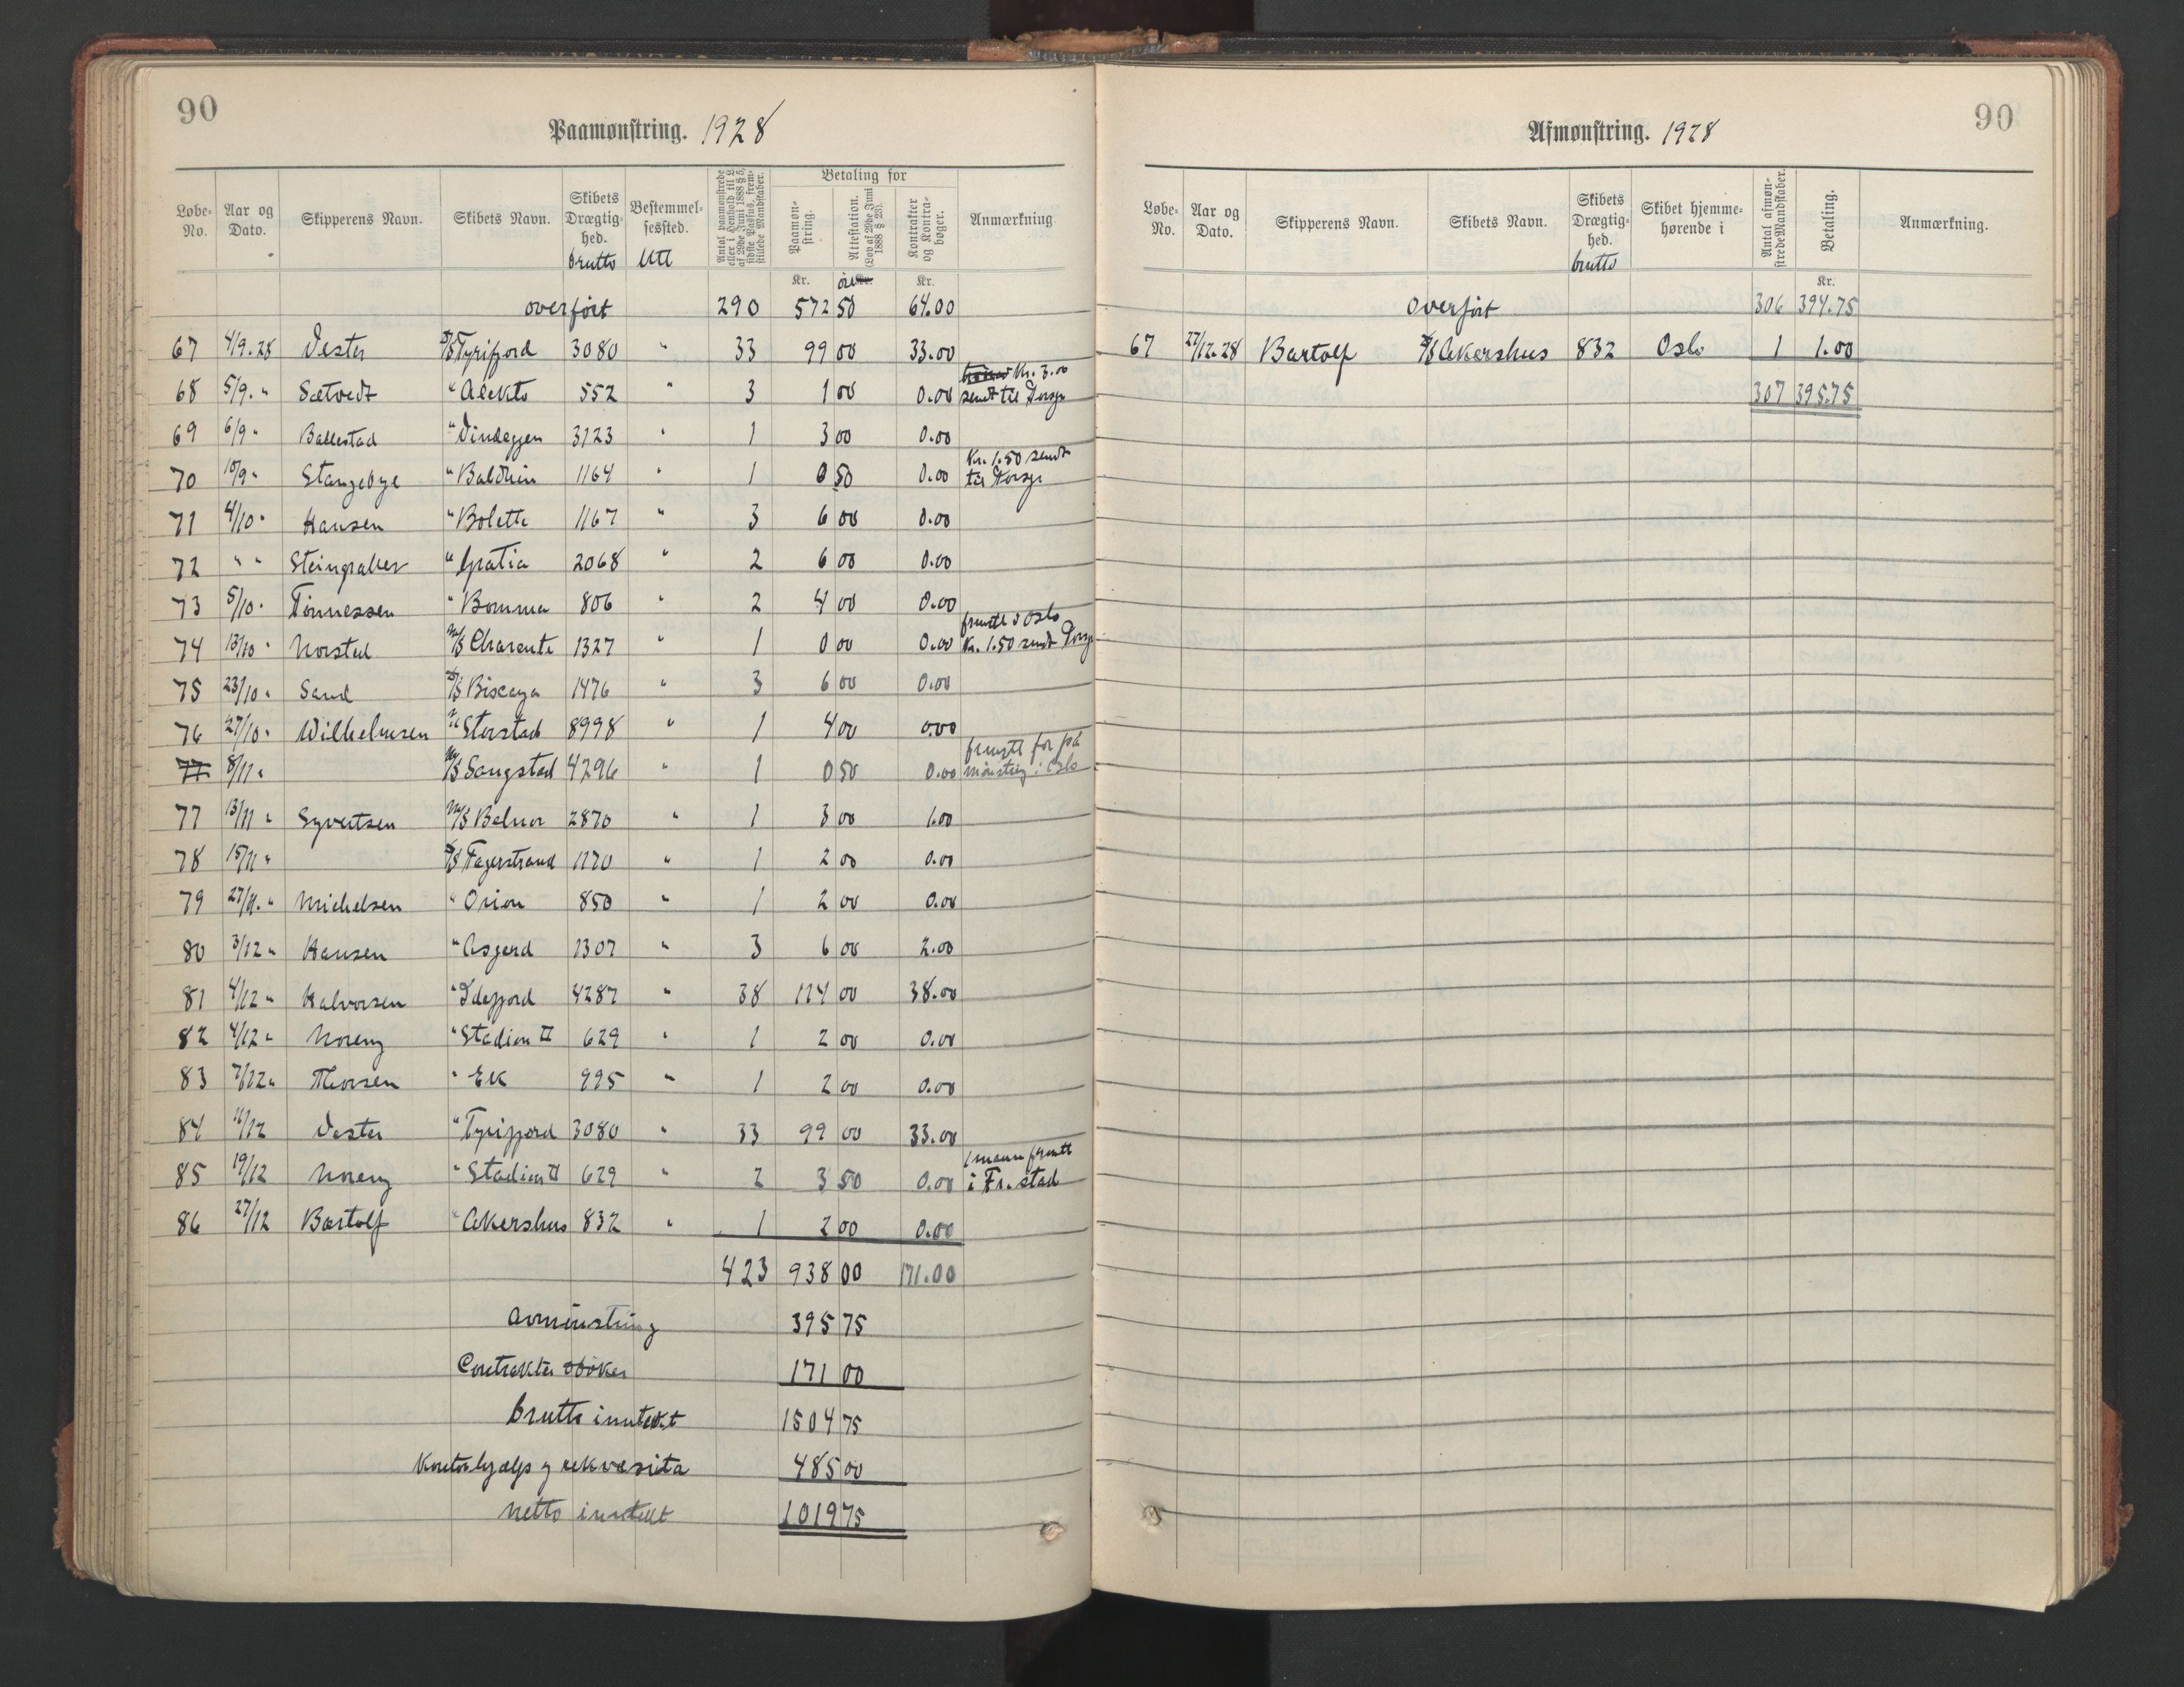 90
Paamønstring. 1928
Løbe-No. Aar og Dato. Skipperens Navn. Skibets Navn. Skibets Drægtighed. brutto Bestemmelsessted. Utl Antal paamønstrede eller i Henhold til L. af 29de Juni 1888 § 5, sidste Passus, fremstillede Mandskaber. Betaling for Paamønstring. Attestation. (Lov af 29de Juni 1888 § 28). Kontrakter og Kontrabøger. Anmærkning
Kr. øre Kr.
overført 290 572 50 64.00
67 4/9.28 Vester S/S Tyrifjord 3080 " 33 99 00 33.00
68 5/9. " Sætvedt " Alekto 552 " 3 1 00 0.00 Kr. 3.00 sendt til Porsgr
69 6/9 " Ballestad " Vindeggen 3123 " 1 3 00 0.00
70 10/9 " Stangebye " Baldrian 1164 " 1 0 50 0.00 Kr. 1.50 sendt til Porsgr
71 4/10 " Hansen " Bolette 1167 " 3 6 00 0.00
72 " " Steingraber " Gratia 2068 " 2 6 00 0.00
73 5/10 " Tönnessen " Bomma 806 " 2 4 00 0.00
74 13/10 " Norstad M/S Charente 1327 " 1 0 00 0.00 fremst i Oslo Kr. 1.50 sendt Porsgr
75 23/10 " Sand S/S Biscaya 1476 " 3 6 00 0.00
76 27/10 " Wilhelmsen Storstad 8998 " 1 4 00 0.00
77 8/11 " M/S Sangstad 4296 " 1 0 50 0.00 fremst for påmönstring i Oslo
77 13/11 " Syvertsen M/S Belnor 2870 " 1 3 00 1.00
78 15/11 " S/S Fagerstrand 1170 " 1 2 00 0.00
79 27/11. " Michelsen " Orion 850 " 1 2 00 0.00
80 3/12 " Hansen " Asgerd 1307 " 3 6 00 2.00
81 4/12 " Halvorsen " Idefjord 4287 " 38 114 00 38.00
82 4/12 " Noreng " Stadion II 629 " 1 2 00 0.00
83 7/12 " Thorsen " Ek 995 " 1 2 00 0.00
84 11/12 Vester " Tyrifjord 3080 " 33 99 00 33.00
85 19/12 Noreng " Stadion II 629 " 2 3 50 0.00 1 mann fremst i Fr.stad
86 27/12 Bartolf " Akershus 832 " 1 2 00 0.00
423 938 00 171.00
Avmönstring 395 75
Contrakter & böker 171 00
brutto inntekt 1504 75
Kontorhjælp og rekvisita 485 00
Netto inntekt 1019 75
90
Afmønstring. 1928
Løbe-No. Aar og Dato. Skipperens Navn. Skibets Navn. Skibets Drægtighed. brutto Skibet hjemmehørende i Antal afmønstrede Mandskaber. Betaling. Anmærkning.
Kr.
overført 306 394.75
67 27/12.28 Bartolf S/S Akershus 832 Oslo 1 1.00
307 395.75